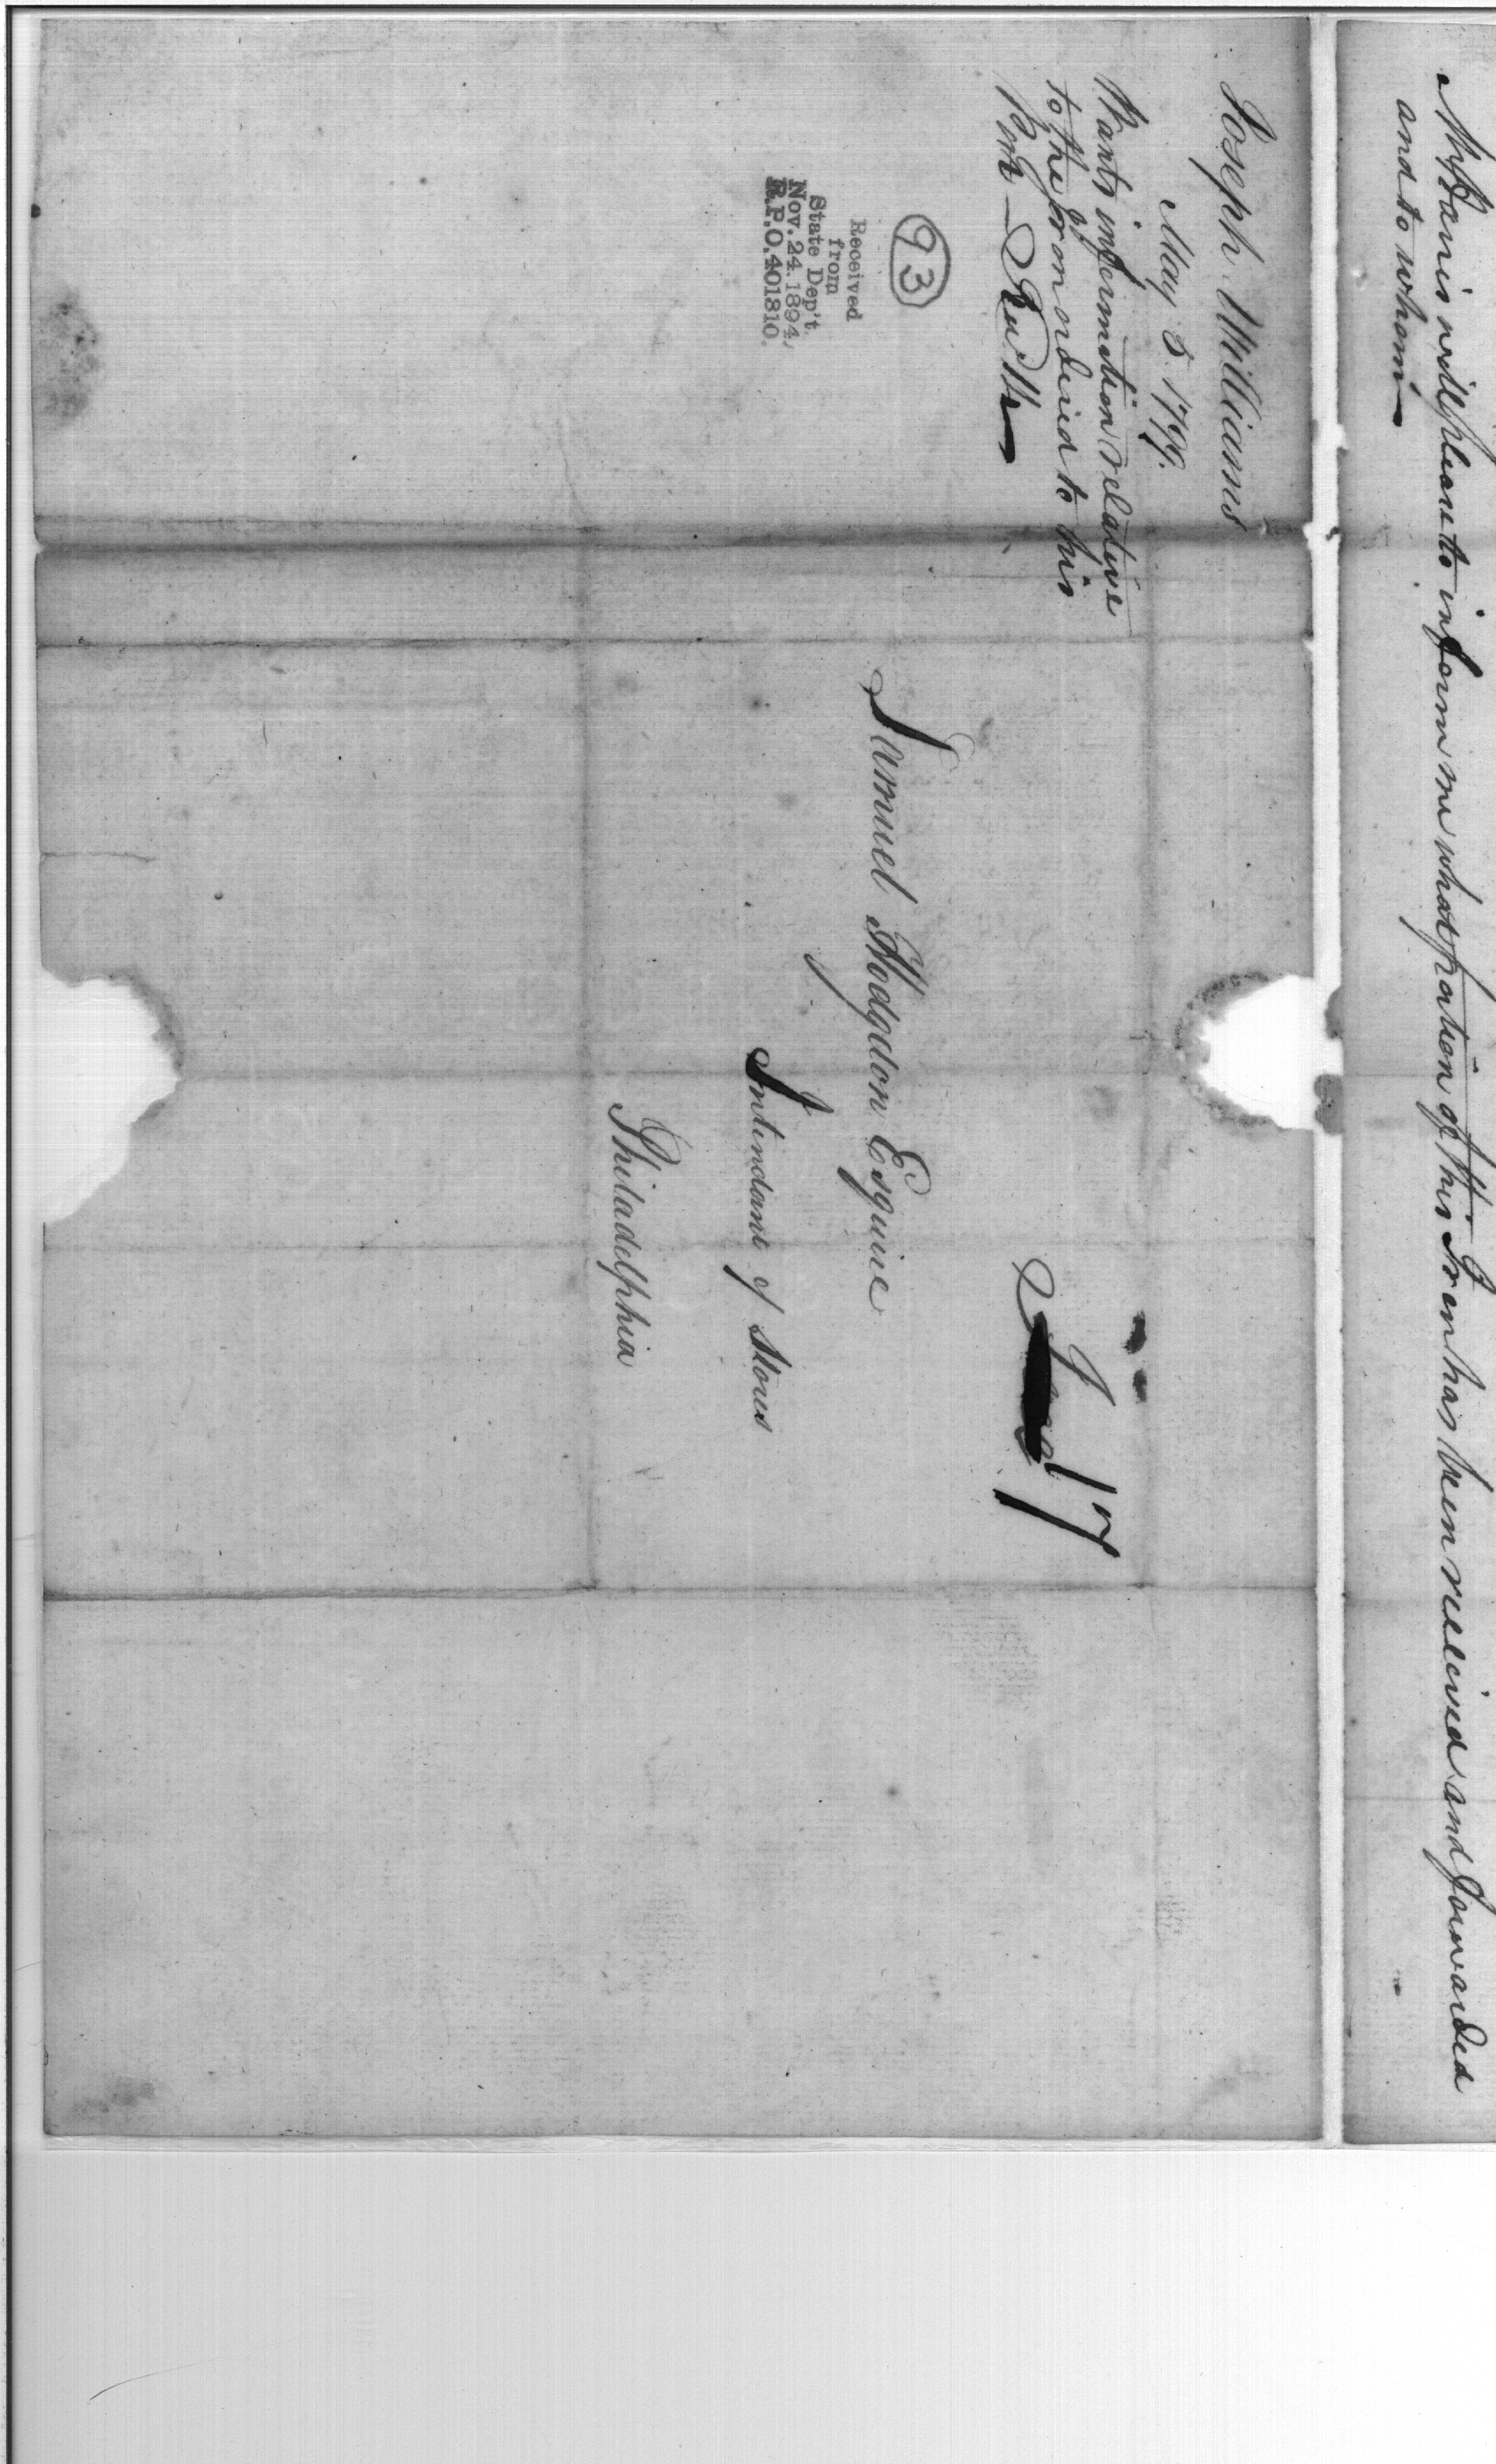 Mr Harris will please to inform me what portion of this Iron has been received and forwarded
and to whom
Joseph Williams
May 5. 1799.
Wants information relative
to the Iron ordered to his
Port
93
Received
from
State Dep't.
Nov. 24. 1894,
R.P.O. 401810.
17
Samuel Hodgdon Esquire
Intendant of Stores
Philadelphia